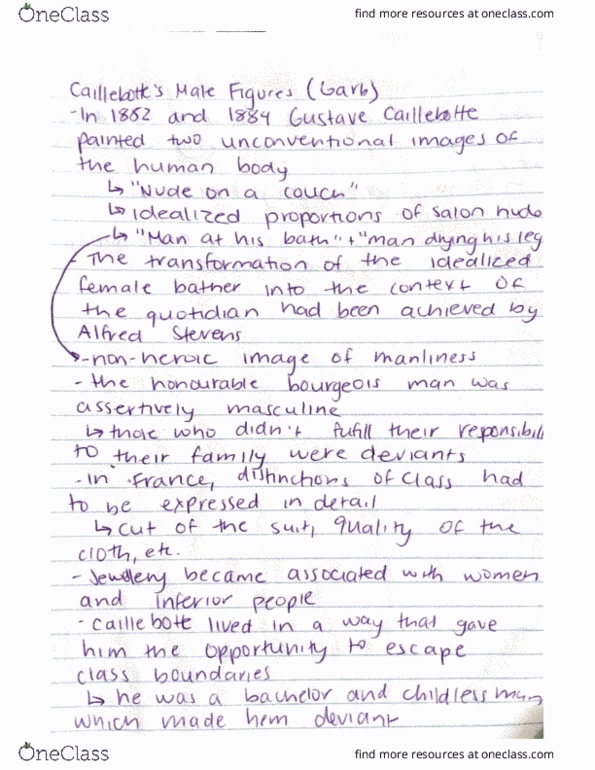 OneClass
find more resources at oneclass.com
Caillebotte's Male Figures (Garb)
-In 1882 and 1884 Gustave Caillebotte
painted two unconventional images of
the human body
↳ "Nude on a couch"
↳ idealized proportions of salon nude
↳ "Man at his bath" + "man drying his leg
- The transformation of the idealized
female bather into the context of
the quotidian had been achieved by
Alfred Stevens
-non-heroic image of manliness
- the honourable bourgeois man was
assertively masculine
↳ those who didn't fulfill their responsibili
to their family were deviants
-in France, distinctions of class had
to be expressed in detail
↳ cut of the suit, quality of the
cloth, etc.
- Jewellery became associated with women
and inferior people
- Caillebotte lived in a way that gave
him the opportunity to escape
class boundaries
↳ he was a bachelor and childless man
which made hem deviant
OneClass
find more resources at oneclass.com